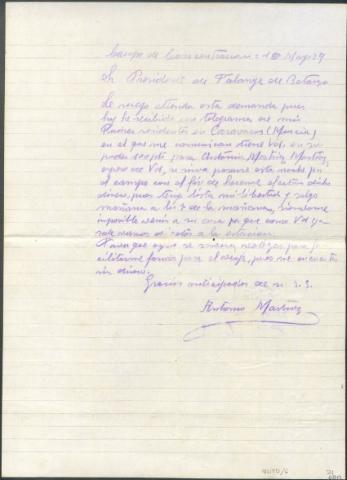 Campo de Concentracion: 10 Mayo 39
Sr. Presidente de Falange de Betanzos
Le ruego atienda esta demanda pues
hoy he recibido un telegrama de mis
residentes en Caravaca (Murcia)
en el que me comunican tiene Vd. en su
poder para Antonio Martinez Martinez,
se sirva pasarse esta noche por
el campo con el fin de hacerme efectivo dicho
dinero, pues tengo lista mi libertad y salgo
mañana a las 7 de la mañana, siendome
imposible venir a su casa ya que como Vd
de a la estacion.
que se sirva realizar para
fondos para el viaje, pues me encuentro
sin dinero.
Gracias anticipadas de su s. s.
Antonio Martinez